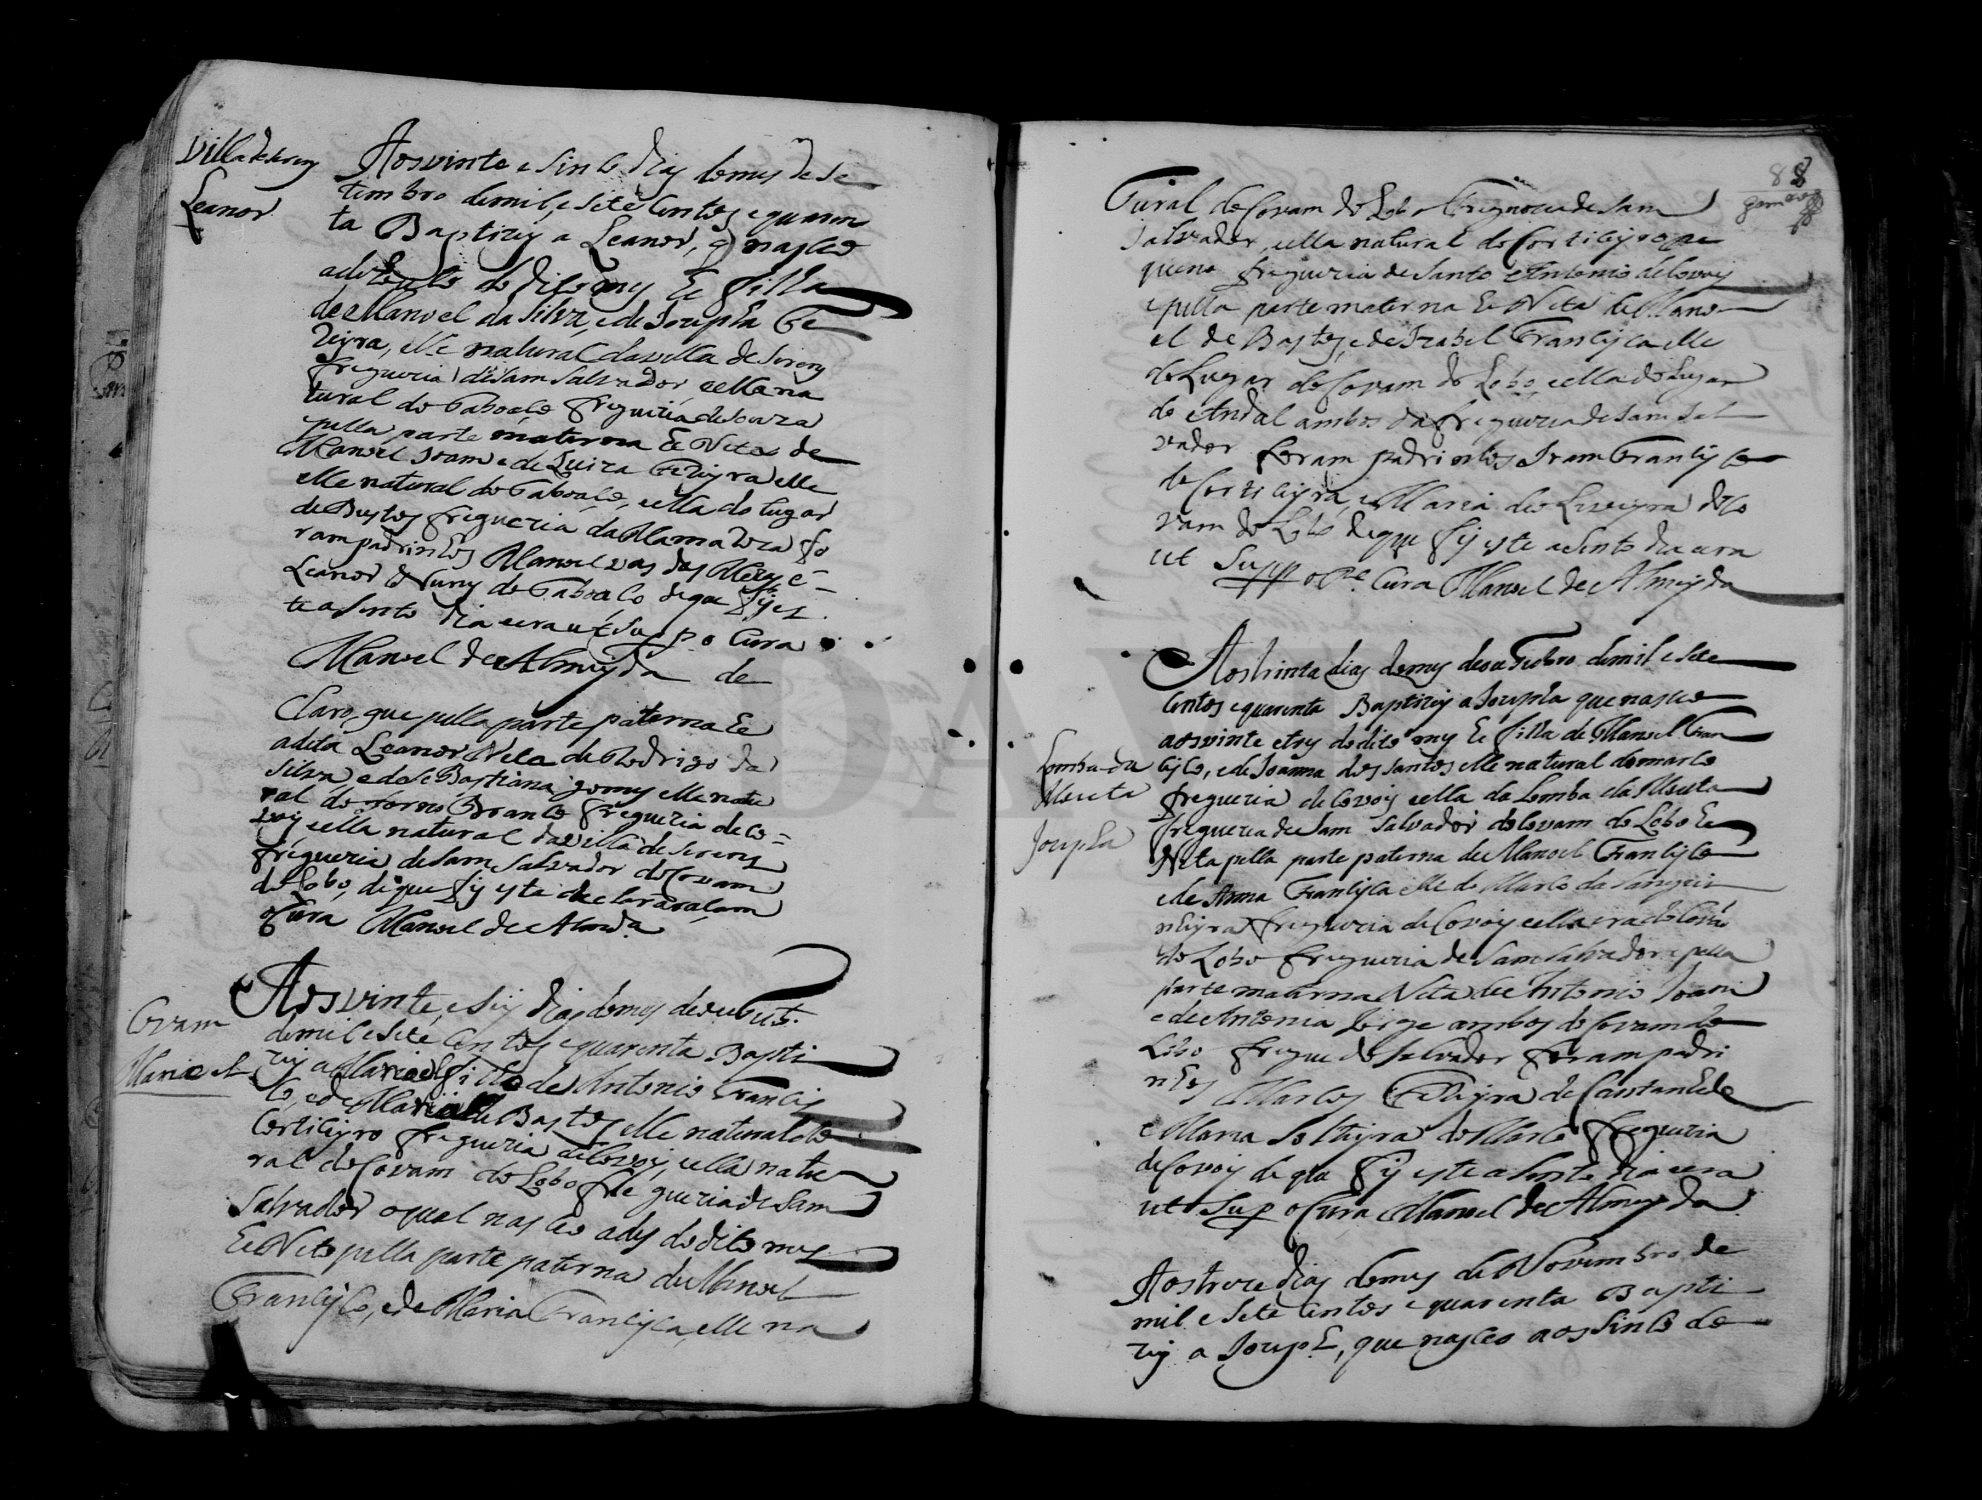 Villa de serem
Leanor
Aos vinte e sinco dias do mes de Se
tembro de mil, e sete Centos e quaren
ta Baptizey a Leanor, q nasceo
do dito mes he filha
de Manoel da Silva, e de Josepha Fe
reyra, elle natural da villa de Serem
freguezia de Sam Salvador, e ella na
tural do Taboaço freguezia de Souza
pella parte materna he Neta de
Manoel Joam e de Luiza Ferreyra elle
elle natural do Taboaço, e ella do lugar
de Bustos freguezia da Mamaroza fo
ram padrinhos Manoel vas das Neves e
Leanor Nunes de Taboaço de que fis es
te asento dia e era ut Sup o Cura
Manoel de Almeyda de
Claro, que pella parte paterna he
a dita Leanor Neta de Rodrigo da
Silva, e de Sebastiana gomes elle natu
ral do forno Branco freguezia de Co=
voy e ella natural da villa de Serem
freguezia de Sam Salvador do Covam
do Lobo, de que fis esta declarasam
o Cura Manoel de Almda
Covam
Manoel
Aos vinte, e seis dias do mes de outubro
de mil e sete Centos e quarenta Bapti
zey a Manoel filho de Antonio Francis
co, e de Maria de Bastos elle natural do
Corticeyro freguezia de Covoy, e ella natu
ral do Covam do Lobo fre guezia de Sam
Salvador o qual nasceo a des do dito mes
he Neto pella parte paterna de Manoel
Francisco, e de Maria Francisca, elle na
88
tural do Covam do Lobo freguezia de Sam
Salvador, e ella natural do Corticeyro pe
queno freguezia de Santo Antonio de Covoy
e pella parte materna he Neto de Mano
el de Bastos, e de Izabel Francisca elle
do Lugar do Covam do Lobo, e ella do Lugar
do Andal ambos da freguezia de Sam Sal
vador foram padrinhos Joam Francisco
do Corticeyro, e Maria de Oliveyra do Co
vam do Lobo de que fis este asento dia e era
ut Supp o Pe. Cura Manoel de Almeyda
Lomba da
Moeta
Josepha
Aos trinta dias do mes de outubro de mil e sete
Centos e quarenta Baptizey a Josepha que nasceo
aos vinte e tres do dito mes he filha de Manoel Fran
cisco, e de Joanna dos Santos elle natural do marco
freguezia de Covoy e ella da Lomba da Moeta
freguezia de Sam Salvador do Covam do Lobo he
Neta pella parte paterna de Manoel Francisco
e de Anna Francisca elle do Marco da Sangui
nheyra freguezia de Covoy e ella era do Covam
do Lobo freguezia de Sam Salvador e pella
parte materna Neta de Antonio Joam
e de Antonia Jorge ambos do Covam do
Lobo fregue do Salvador foram padri
nhos Marcos Ferreyra de Cantanhede
e Maria Solteyra do Marco freguezia
de Covoy de que fis este asento dia e era
ut Sup o Cura Manoel de Almeyda
Aos treze dias do mes de Novembro de
mil e sete Centos e quarenta Bapti
zey a Joseph, que nasceo aos sinco do